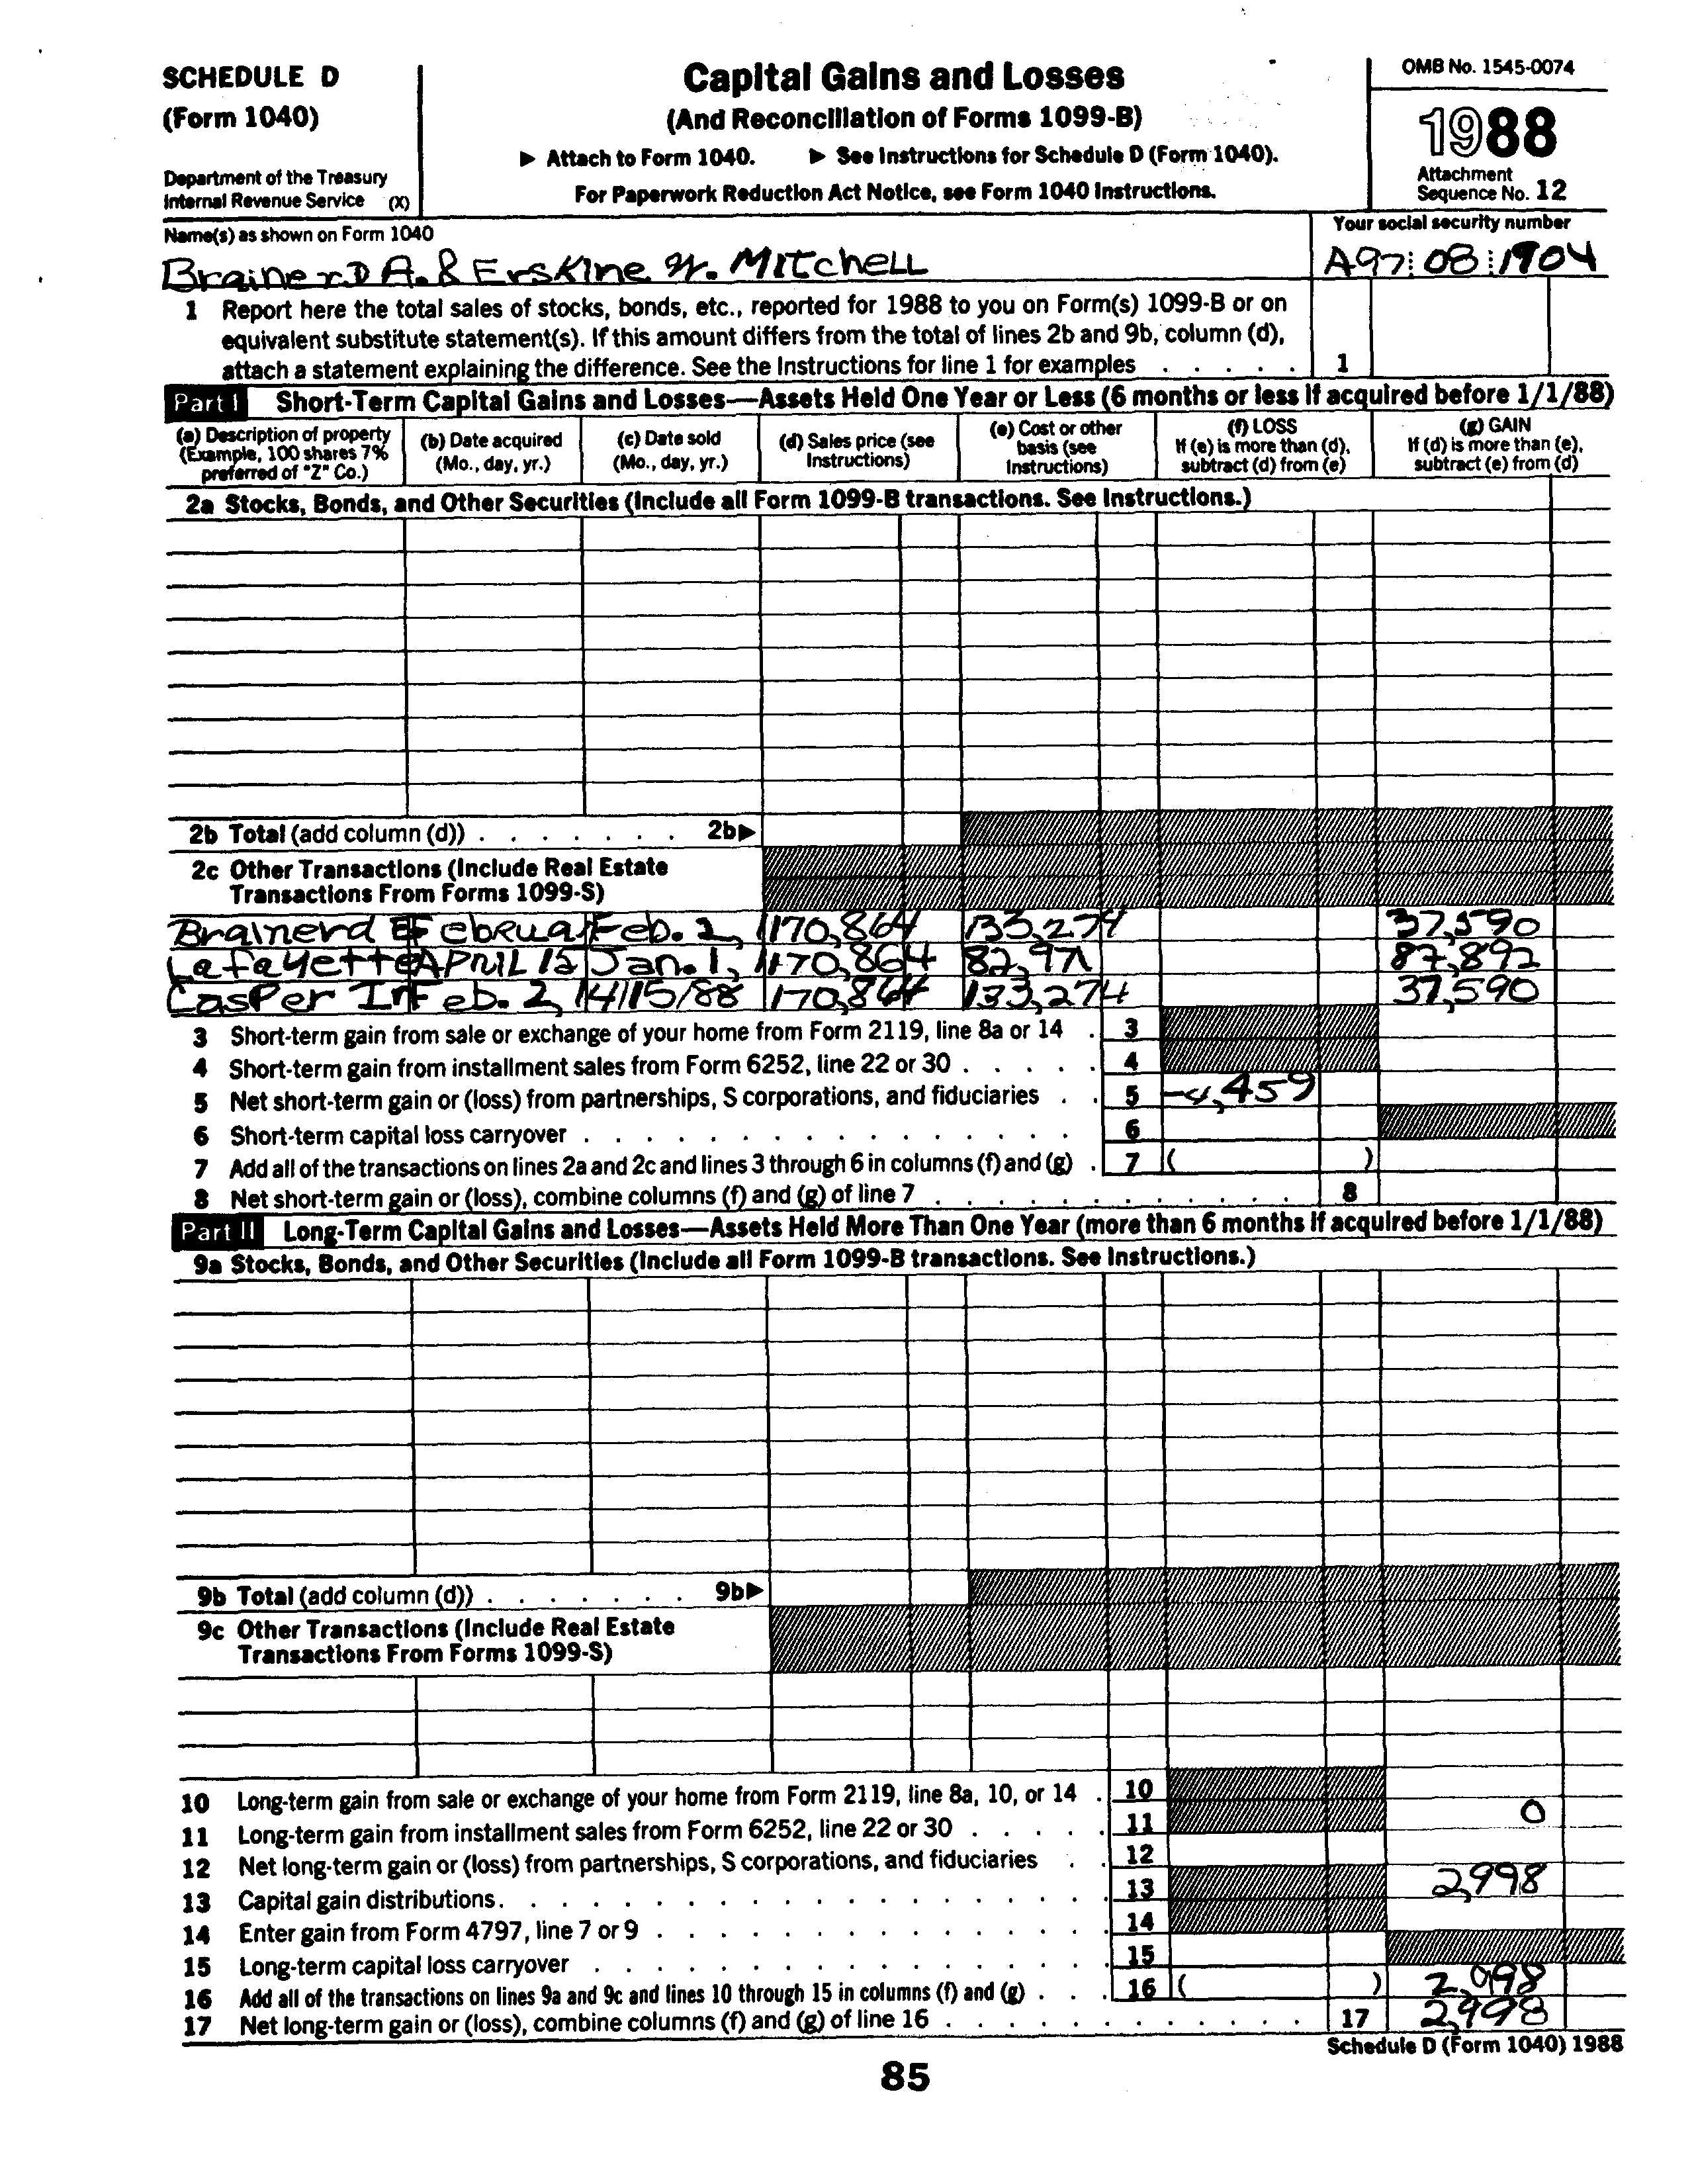 SCHEDULE D
(Form 1040)
Department of the Treasury
Internal Revenue Service (X)
Capital Gains and Losses
(And Reconciliation of Forms 1099-B)
▶ Attach to Form 1040. ▶ See Instructions for Schedule D (Form 1040).
For Paperwork Reduction Act Notice, see Form 1040 Instructions.
OMB No. 1545-0074
1988
Attachment
Sequence No. 12
Name(s) as shown on Form 1040
Your social security number
Brainerd A. & Erskine W. Mitchell
A97 08 1904
1 Report here the total sales of stocks, bonds, etc., reported for 1988 to you on Form(s) 1099-B or on
equivalent substitute statement(s). If this amount differs from the total of lines 2b and 9b, column (d),
attach a statement explaining the difference. See the Instructions for line 1 for examples . . . . . 1
Part I Short-Term Capital Gains and Losses—Assets Held One Year or Less (6 months or less if acquired before 1/1/88)
(a) Description of property (Example, 100 shares 7% preferred of "Z" Co.)
(b) Date acquired (Mo., day, yr.)
(c) Date sold (Mo., day, yr.)
(d) Sales price (see Instructions)
(e) Cost or other basis (see Instructions)
(f) LOSS If (e) is more than (d), subtract (d) from (e)
(g) GAIN If (d) is more than (e), subtract (e) from (d)
2a Stocks, Bonds, and Other Securities (Include all Form 1099-B transactions. See Instructions.)
2b Total (add column (d)) . . . . . . . 2b▶
2c Other Transactions (Include Real Estate
Transactions From Forms 1099-S)
Brainerd E Februar Feb. 2, 170,864 133,274 37,590
Lafayette APRIL 15 Jan. 1, 170,864 82,971 87,892
Casper In Feb. 2, 4/15/88 170,864 133,274 37,590
3 Short-term gain from sale or exchange of your home from Form 2119, line 8a or 14 . 3
4 Short-term gain from installment sales from Form 6252, line 22 or 30 . . . . . 4
5 Net short-term gain or (loss) from partnerships, S corporations, and fiduciaries . . 5 -4,459
6 Short-term capital loss carryover . . . . . . . . . . . . . . . . 6
7 Add all of the transactions on lines 2a and 2c and lines 3 through 6 in columns (f) and (g) . 7 ( )
8 Net short-term gain or (loss), combine columns (f) and (g) of line 7 . . . . . . . . . . . . 8
Part II Long-Term Capital Gains and Losses—Assets Held More Than One Year (more than 6 months if acquired before 1/1/88)
9a Stocks, Bonds, and Other Securities (Include all Form 1099-B transactions. See Instructions.)
9b Total (add column (d)) . . . . . . . 9b▶
9c Other Transactions (Include Real Estate
Transactions From Forms 1099-S)
10 Long-term gain from sale or exchange of your home from Form 2119, line 8a, 10, or 14 . 10
11 Long-term gain from installment sales from Form 6252, line 22 or 30 . . . . . 11 0
12 Net long-term gain or (loss) from partnerships, S corporations, and fiduciaries . . 12
13 Capital gain distributions . . . . . . . . . . . . . . . . . . . 13 2,998
14 Enter gain from Form 4797, line 7 or 9 . . . . . . . . . . . . . . 14
15 Long-term capital loss carryover . . . . . . . . . . . . . . . . 15
16 Add all of the transactions on lines 9a and 9c and lines 10 through 15 in columns (f) and (g) . . . 16 ( ) 2,998
17 Net long-term gain or (loss), combine columns (f) and (g) of line 16 . . . . . . . . . . . . 17 2,998
Schedule D (Form 1040) 1988
85